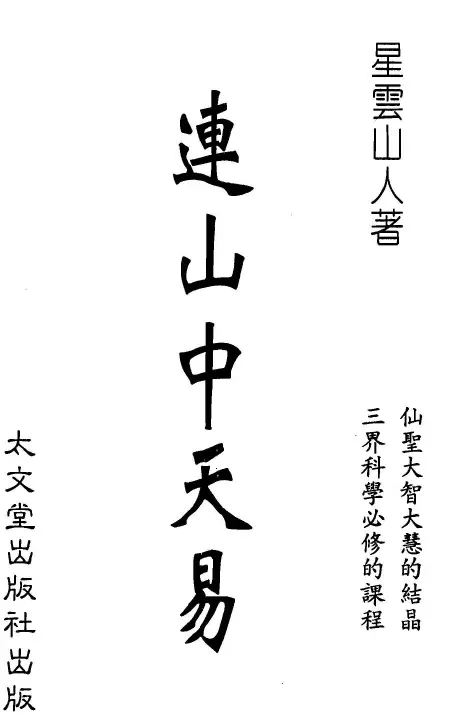 星雲山人著
仙聖大智大慧的結晶
三界科學必修的課程
連山中天易
太文堂出版社出版